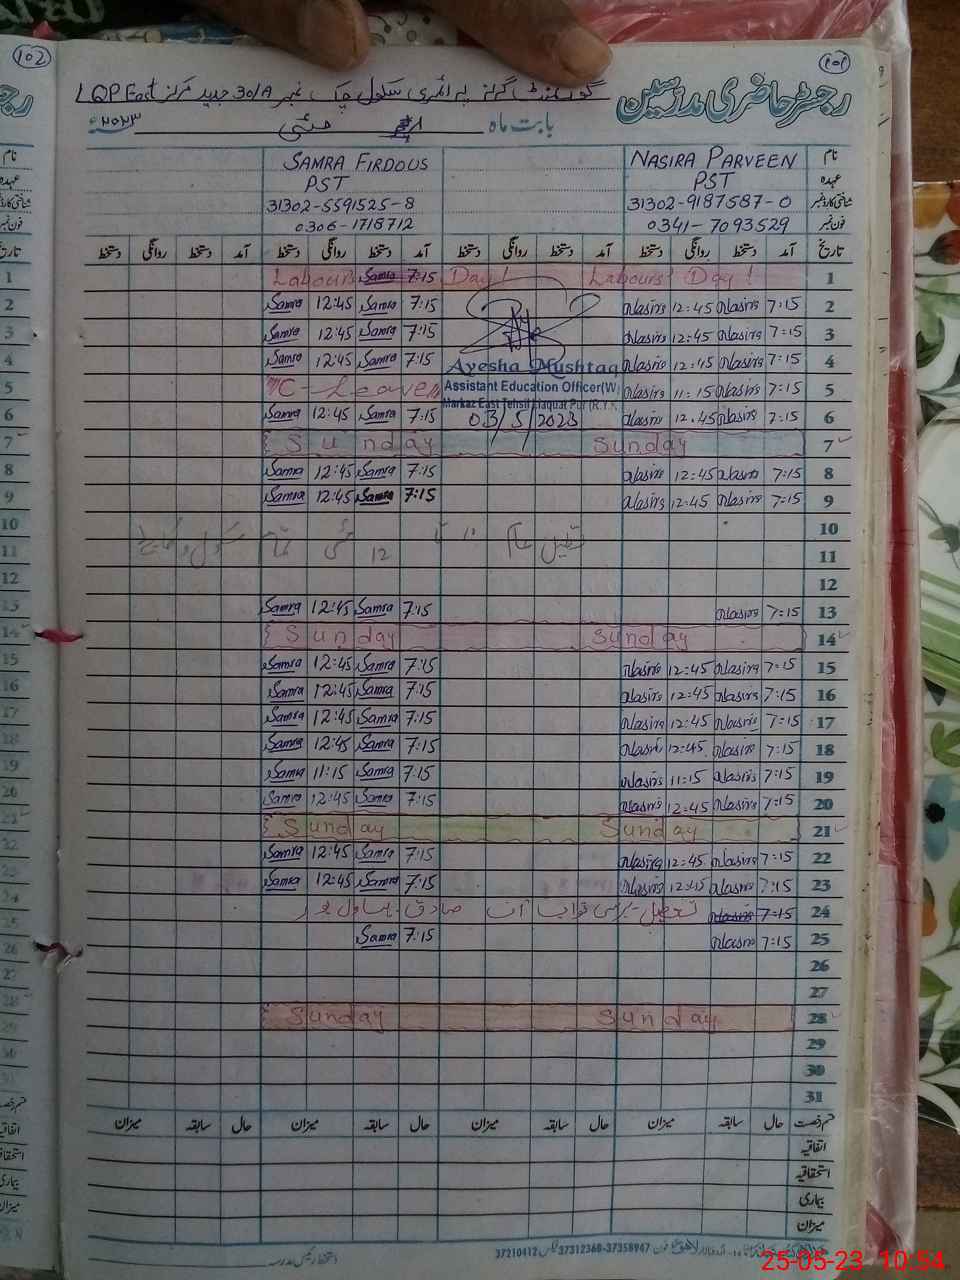 102
101
رجسٹر حاضری مدرسین
گورنمنٹ گرلز پرائمری سکول چک نمبر 30/A جدید مرکز LQP East
بابت ماہ مئی ۲۰۲۳
نام NASIRA PARVEEN SAMRA FIRDOUS
عہدہ PST PST
شناختی کارڈ نمبر 31302-9187587-0 31302-5591525-8
فون نمبر 0341-7093529 0306-1718712
تاریخ آمد دستخط روانگی دستخط آمد دستخط روانگی دستخط آمد دستخط روانگی دستخط آمد دستخط روانگی دستخط
1 Labours Day! Labours Samra 7:15 Day!
2 7:15 Nasira 12:45 Nasira 7:15 Samra 12:45 Samra
3 7:15 Nasira 12:45 Nasira 7:15 Samra 12:45 Samra
4 7:15 Nasira 12:45 Nasira 7:15 Samra 12:45 Samra
Ayesha Mushtaq
5 7:15 Nasira 11:15 Nasira C-Leave
Assistant Education Officer(W)
Markaz East Tehsil Liaquat Pur (R.Y.K
6 7:15 Nasira 12:45 Nasira 03/5/2023 7:15 Samra 12:45 Samra
7 Sunday Sunday
8 7:15 Nasira 12:45 Nasira 7:15 Samra 12:45 Samra
9 7:15 Nasira 12:45 Nasira 7:15 Samra 12:45 Samra
10
11 12 مئی تمام سکول
12
13 7:15 Nasira 7:15 Samra 12:45 Samra
14 Sunday Sunday
15 7:15 Nasira 12:45 Nasira 7:15 Samra 12:45 Samra
16 7:15 Nasira 12:45 Nasira 7:15 Samra 12:45 Samra
17 7:15 Nasira 12:45 Nasira 7:15 Samra 12:45 Samra
18 7:15 Nasira 12:45 Nasira 7:15 Samra 12:45 Samra
19 7:15 Nasira 11:15 Nasira 7:15 Samra 11:15 Samra
20 7:15 Nasira 12:45 Nasira 7:15 Samra 12:45 Samra
21 Sunday Sunday
22 7:15 Nasira 12:45 Nasira 7:15 Samra 12:45 Samra
23 7:15 Nasira 12:45 Nasira 7:15 Samra 12:45 Samra
24 7:15 Nasira تعطیل برسی نواب آف صادق بہاولپور
25 7:15 Nasira 7:15 Samra
26
27
28 Sunday Sunday
29
30
31
قسم رخصت حال سابقہ میزان حال سابقہ میزان حال سابقہ میزان حال سابقہ میزان
اتفاقیہ
استحقاقیہ
بیماری
میزان
فون 37358947-37312360 فیکس 37210412
دستخط رئیس مدرسہ
25-05-23 10:54